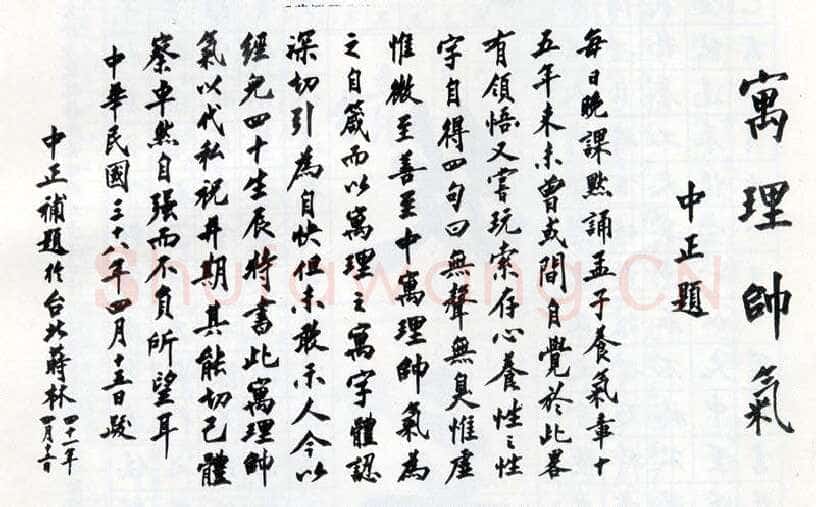 寓理帥氣
中正題
每日晚課默誦孟子養氣章十
五年來未曾或間自覺於此畧
有領悟又嘗玩索存心養性之性
字自得四句曰無聲無臭惟虛
惟微至善至中寓理帥氣為
之自箴而以寓理之寓字體認
深切引為自快但未敢示人今以
經兒四十生辰特書此寓理帥
氣以代私祝并期其能切己體
察卓然自強而不負所望耳
中華民國三十八年四月十五日跋
中正補題於台北蔣林
四十一年
四月十五日
Shufawang.CN